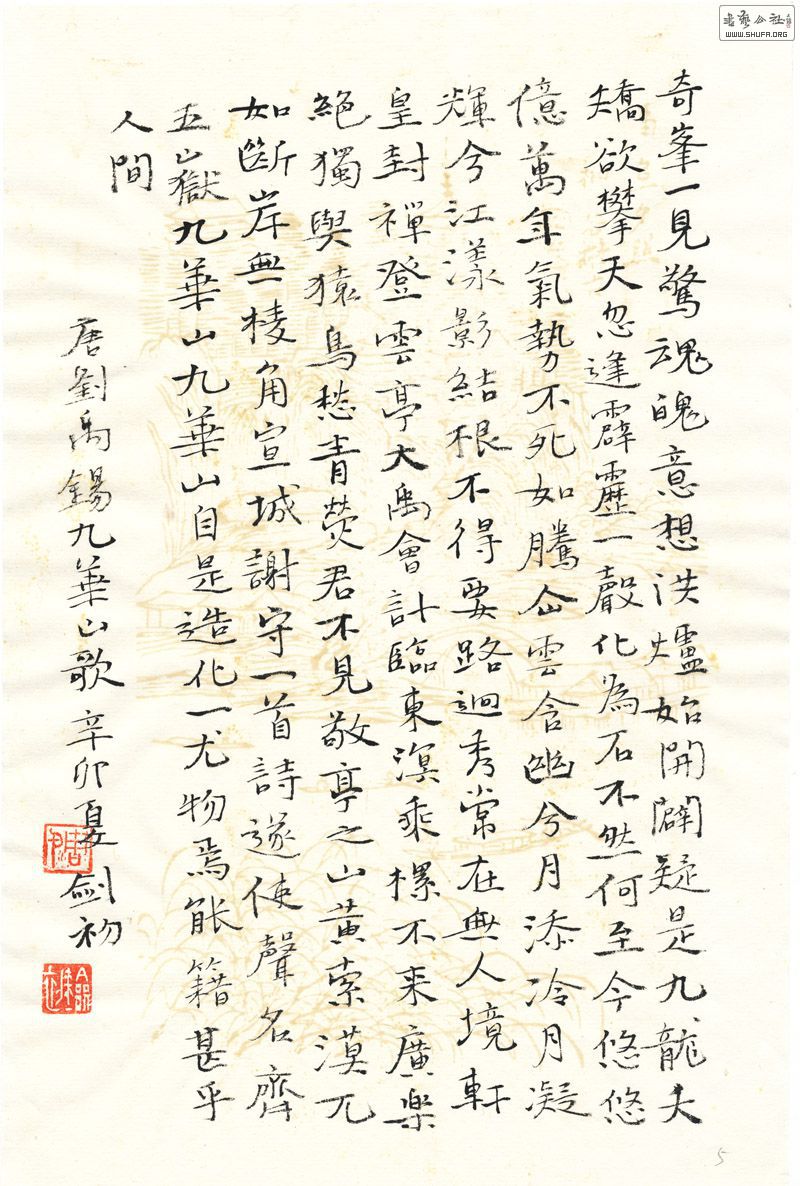 奇峯一見驚魂魄意想洪爐始開闢疑是九龍夭
矯欲攀天忽逢霹靂一聲化為石不然何至今悠悠
億萬年氣勢不死如騰仚雲含幽兮月添冷月凝
輝兮江漾影結根不得要路迥秀常在無人境軒
皇封禪登雲亭大禹會計臨東溟乘樏不來廣樂
絕獨與猿鳥愁青熒君不見敬亭之山黃索漠兀
如斷岸無棱角宣城謝守一首詩遂使聲名齊
五山嶽九華山九華山自是造化一尤物焉能籍甚乎
人間
唐劉禹錫九華山歌 辛卯夏 劍初
WWW.SHUFA.ORG
5